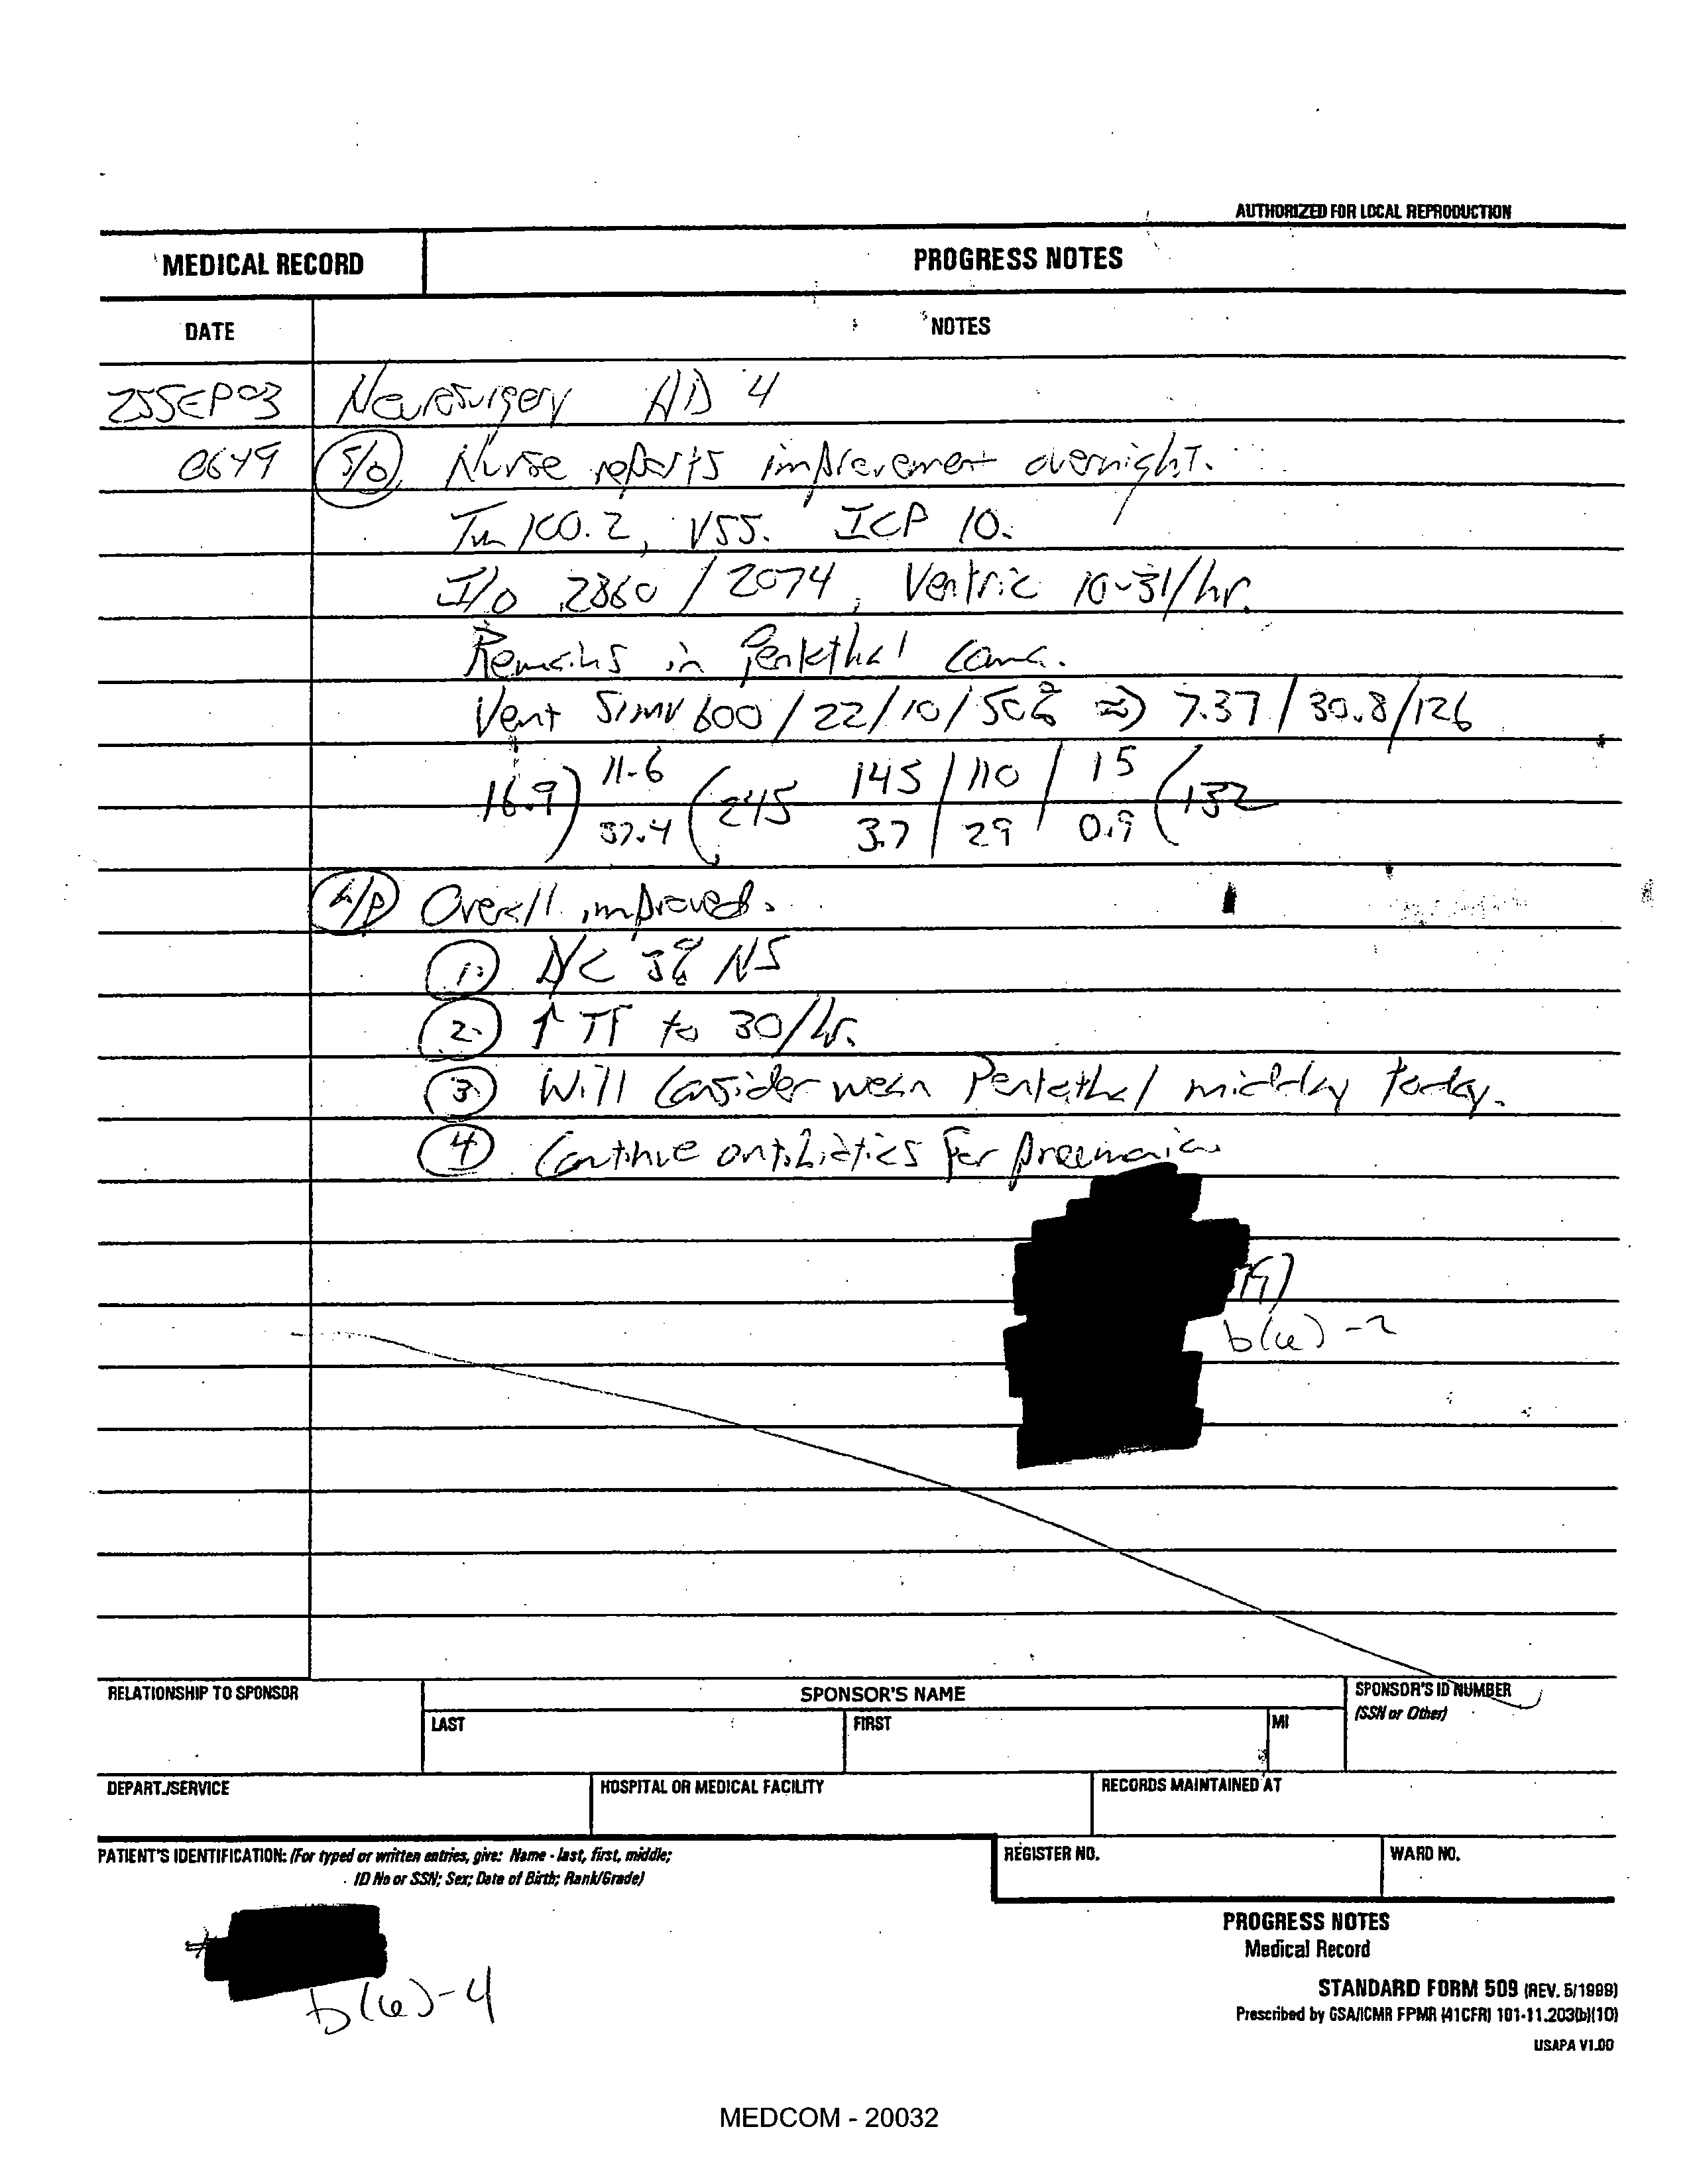 AUTHORIZED FOR LOCAL REPRODUCTION
MEDICAL RECORD PROGRESS NOTES
DATE NOTES
25SEP03 Neurosurgery HD 4
0649 S/O Nurse reports improvement overnight.
Tm 100.2, VSS. ICP 10.
I/O 2860 / 2074, Ventric 10-31/hr.
Remains in Pentothal coma.
Vent SIMV 600 / 22 / 10 / 50% => 7.37 / 30.8 / 126
16.9 ) 11.6 ( 245 145 / 110 / 15 ( 132
37.4 3.7 / 29 / 0.9
A/P Overall improved.
1. D/C 3% NS
2. ↑ TF to 30/hr.
3. Will consider wean Pentothal midday today.
4 Continue antibiotics for pneumonia
b(6)-2
RELATIONSHIP TO SPONSOR SPONSOR'S NAME SPONSOR'S ID NUMBER
(SSN or Other)
LAST FIRST MI
DEPART./SERVICE HOSPITAL OR MEDICAL FACILITY RECORDS MAINTAINED AT
PATIENT'S IDENTIFICATION: (For typed or written entries, give: Name - last, first, middle;
ID No or SSN; Sex; Date of Birth; Rank/Grade)
REGISTER NO. WARD NO.
#
b(6)-4
PROGRESS NOTES
Medical Record
STANDARD FORM 509 (REV. 5/1999)
Prescribed by GSA/ICMR FPMR (41CFR) 101-11.203(b)(10)
USAPA V1.00
MEDCOM - 20032